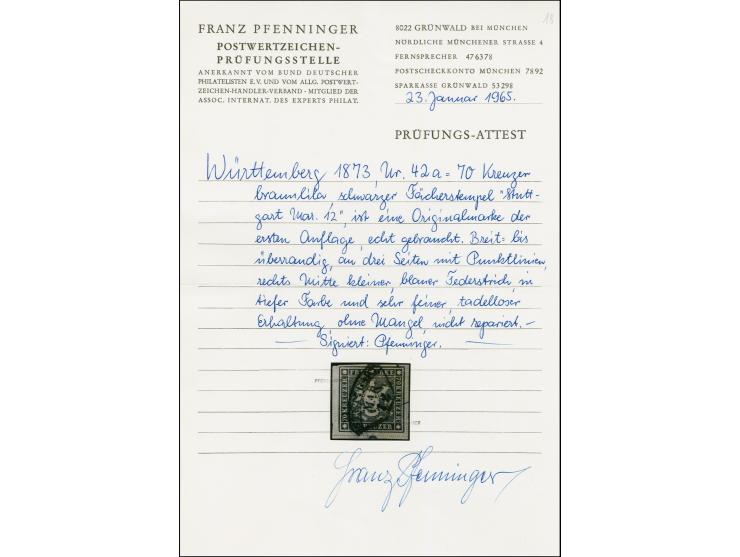 18
FRANZ PFENNINGER
POSTWERTZEICHEN-
PRÜFUNGSSTELLE
ANERKANNT VOM BUND DEUTSCHER
PHILATELISTEN E.V. UND VOM ALLG. POSTWERT-
ZEICHEN-HÄNDLER-VERBAND · MITGLIED DER
ASSOC. INTERNAT. DES EXPERTS PHILAT.
8022 GRÜNWALD BEI MÜNCHEN
NÖRDLICHE MÜNCHENER STRASSE 4
FERNSPRECHER 476378
POSTSCHECKKONTO MÜNCHEN 7892
SPARKASSE GRÜNWALD 53298
23. Januar 1965.
PRÜFUNGS-ATTEST
Württemberg 1873, Nr. 42a = 70 Kreuzer
braunlila, schwarzer Fächerstempel "Stutt-
gart Mar. 12", ist eine Originalmarke der
ersten Auflage, echt gebraucht. Breit- bis
überrandig, an drei Seiten mit Punktlinien,
rechts Mitte kleiner, blauer Federstrich, in
tiefer Farbe und sehr feiner, tadelloser
Erhaltung, ohne Mängel, nicht repariert. —
— Signiert: Pfenninger. —
70 KREUZER
FREIMARKE
70 KREUZER
KREUZER
Franz Pfenninger